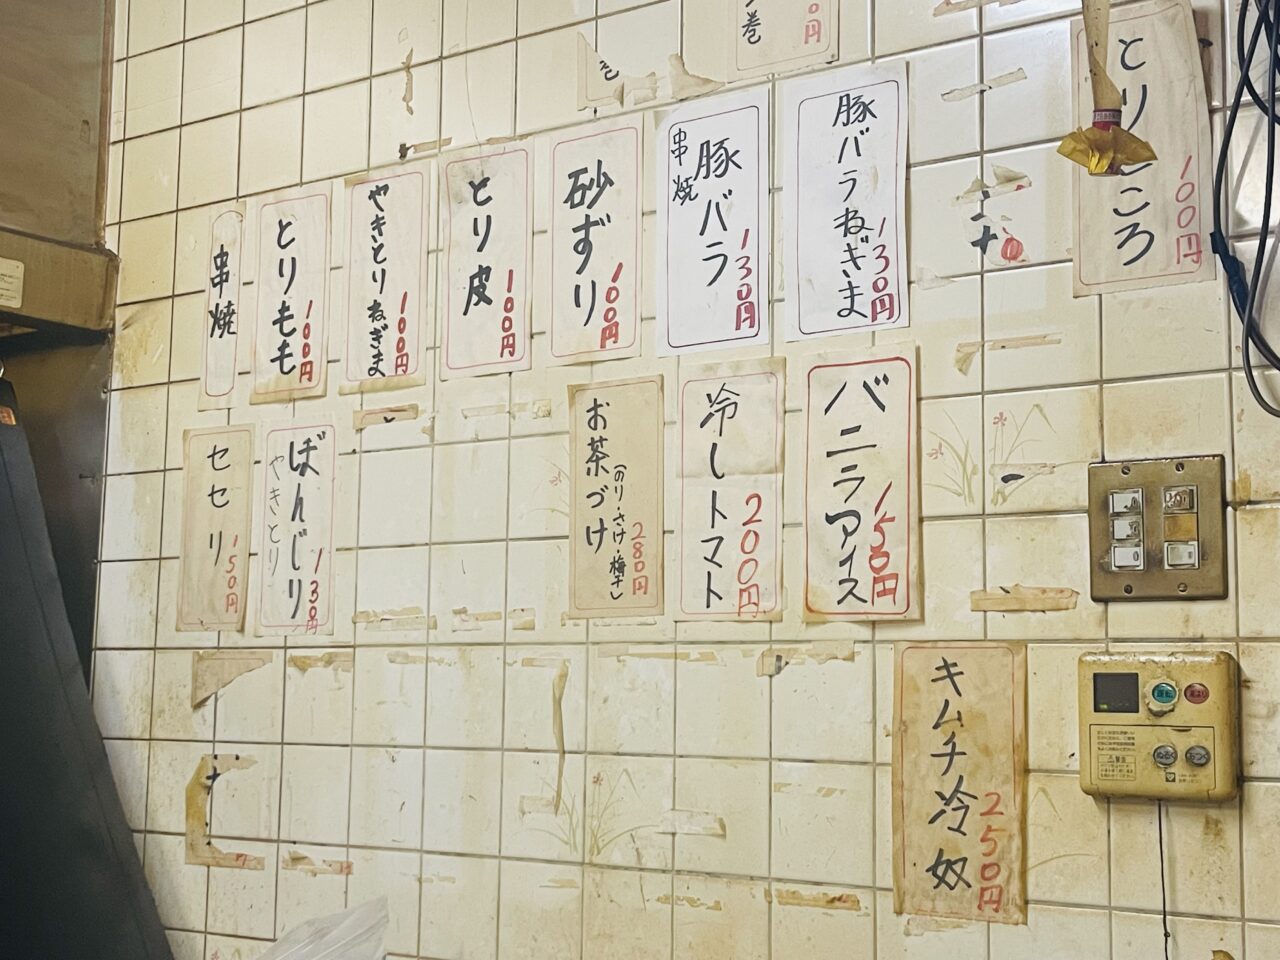 巻
円
とりごころ
100円
豚バラねぎま
130円
串焼
豚バラ
130円
砂ずり
100円
とり皮
100円
やきとりねぎま
100円
とりもも
100円
串焼
バニラアイス
150円
冷しトマト
200円
お茶づけ
(のり・さけ・梅干し)
280円
ぼんじり
やきとり
130円
セセリ
150円
キムチ冷奴
250円
運転
ぬるく
あつく